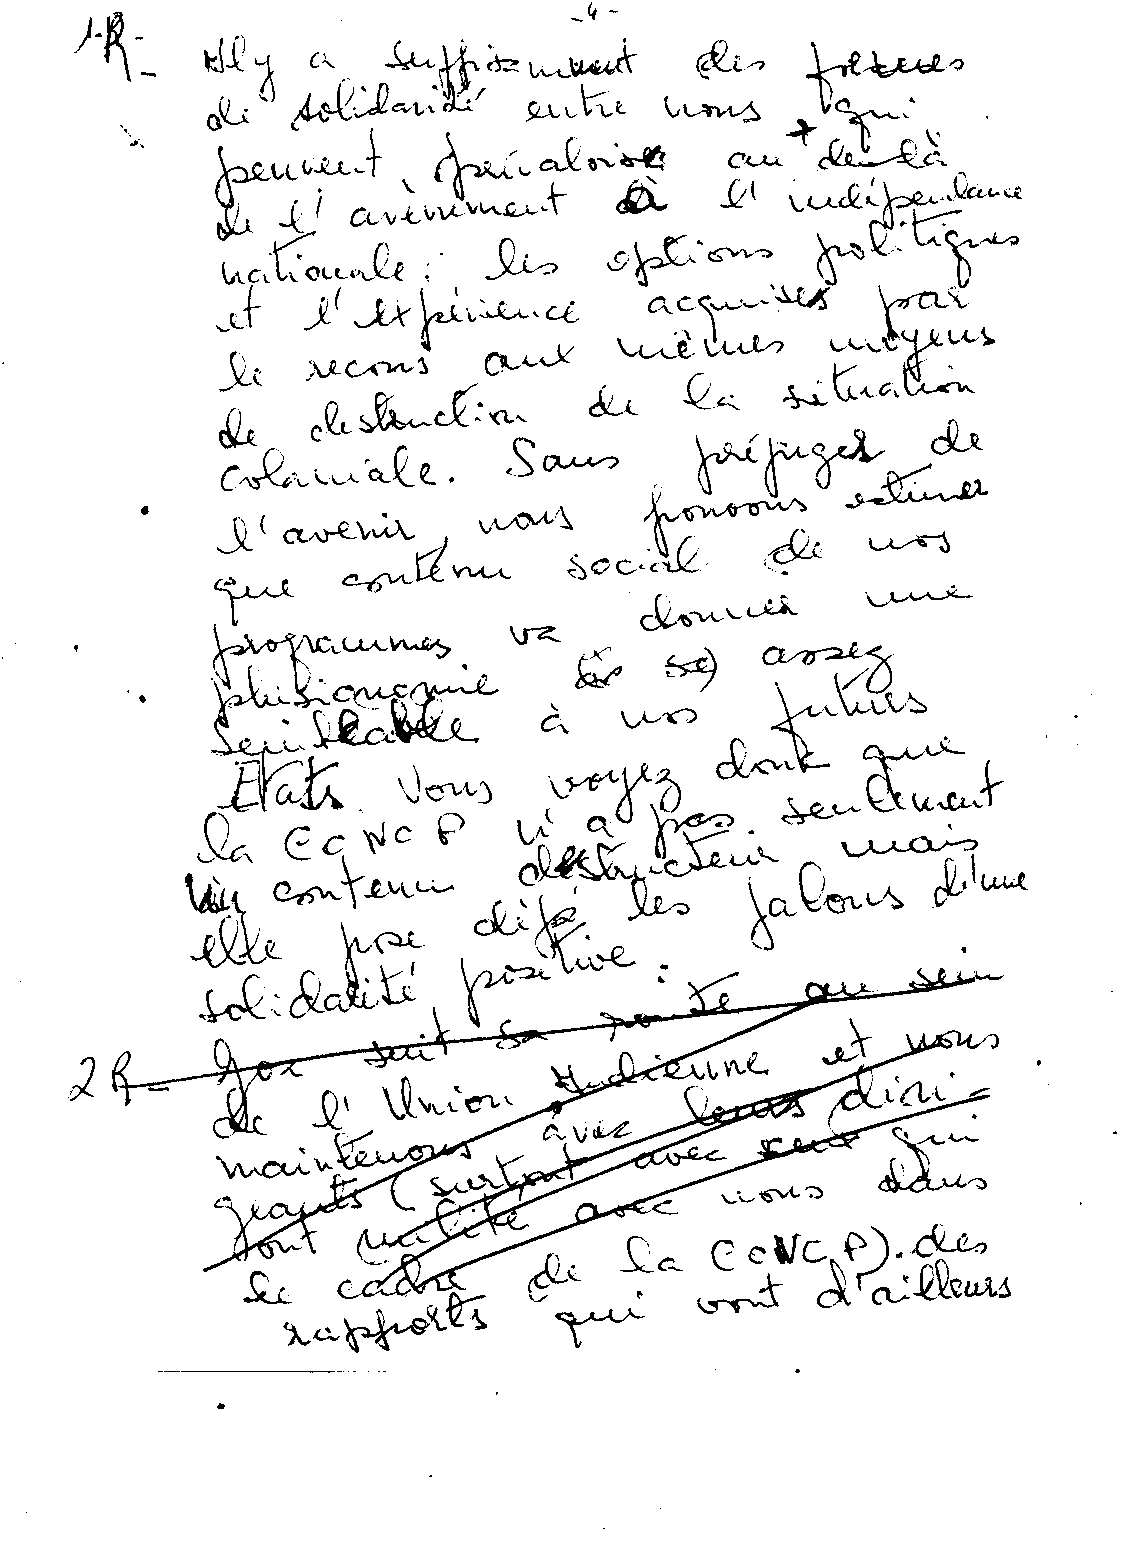 -4-
1-R- Il y a suffisamment des formes
de solidarité entre nous qui
peuvent prévaloir au delà
de l'avènement à l'indépendance
nationale: les options politiques
et l'expérience acquises par
le recours aux mêmes moyens
de destruction de la situation
coloniale. Sans préjuger de
l'avenir, nous pouvons estimer
que contenu social de nos
programmes va donner une
phisionomie assez
semblable à nos futurs
Etats. Vous voyez donc que
la CONCP n'a pas seulement
un contenu destructeur mais
elle pose déjà les jalons d'une
solidarité positive.
2R- Goa suit sa route au sein
de l'Union Indienne et nous
maintenons avec leurs diri-
geants (surtout avec ceux qui
ont milité avec nous dans
le cadre de la CONCP). des
rapports qui vont d'ailleurs